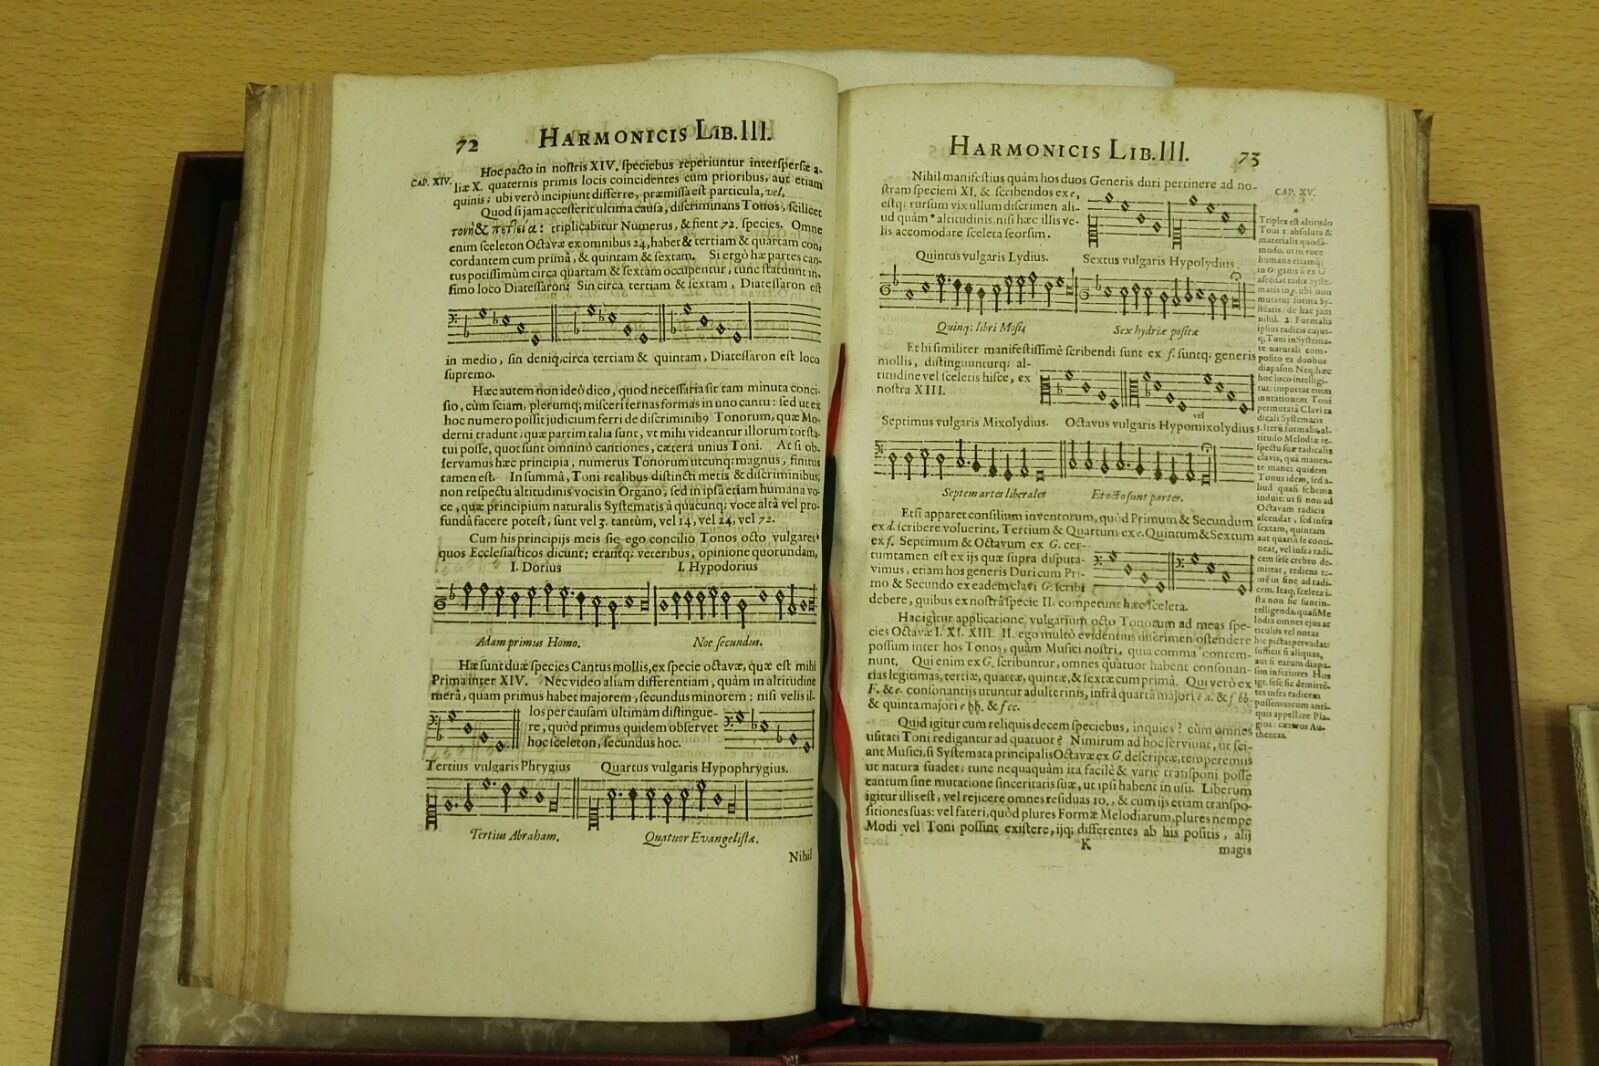 72 HARMONICIS LIB. III.
CAP. XIV.
Hoc pacto in nostris XIV. speciebus reperiuntur interspersæ a-
liæ X. quaternis primis locis coincidentes cum prioribus, aut etiam
quinis; ubi verò incipiunt differre, præmissa est particula, vel,
Quod si jam accesserit ultima causa, discriminans Tonos, scilicet
τονὴ & πετλεία: triplicabitur Numerus, & fient 72. species. Omne
enim sceleton Octavæ ex omnibus 24, habet & tertiam & quartam con-
cordantem cum primâ, & quintam & sextam. Si ergò hæ partes can-
tus potissimùm circa quartam & sextam occupentur, tunc statuunt in-
fimo loco Diatessaron: Sin circa tertiam & sextam, Diatessaron est
in medio, sin deniq; circa tertiam & quintam, Diatessaron est loco
supremo.
Hæc autem non ideò dico, quod necessaria sit tam minuta conci-
sio, cùm sciam, plerumq; misceri ternas formas in uno cantu: sed ut ex
hoc numero possit judicium ferri de discriminib9 Tonorum, quæ Mo-
derni tradunt; quæ partim talia sunt, vt mihi videantur illorum tot sta-
tui posse, quot sunt omninò cantiones, cæterà unius Toni. At si ob-
servamus hæc principia, numerus Tonorum utcunq; magnus, finitus
tamen est. In summâ, Toni realibus distincti metis & discriminibus,
non respectu altitudinis vocis in Organo, sed in ipsâ etiam humana vo-
ce, quæ principium naturalis Systematis à quacunq; voce altâ vel pro-
fundâ facere potest, sunt vel 3. tantùm, vel 14, vel 24, vel 72.
Cum his principijs meis sic ego concilio Tonos octo vulgares
quos Ecclesiasticos dicunt; erantq; veteribus, opinione quorundam,
I. Dorius I. Hypodorius
Adam primus Homo. Noe secundus.
Hæ sunt duæ species Cantus mollis, ex specie octavæ, quæ est mihi
Prima inter XIV. Nec video aliam differentiam, quàm in altitudine
merâ, quam primus habet majorem, secundus minorem: nisi velis il-
los per causam ultimam distingue-
re, quòd primus quidem observet
hoc sceleton, secundus hoc.
Tertius vulgaris Phrygius Quartus vulgaris Hypophrygius.
Tertius Abraham. Quatuor Evangelistæ.
Nihil
HARMONICIS LIB. III. 73
Nihil manifestius quàm hos duos Generis duri pertinere ad no-
stram speciem XI, & scribendos ex e,
estq; rursum vix ullum discrimen ali-
ud quàm * altitudinis. nisi hæc illis ve-
lis accomodare sceleta seorsim.
Quintus vulgaris Lydius. Sextus vulgaris Hypolydius.
Quinq; libri Mosis Sex hydriæ positæ
Et hi similiter manifestissimè scribendi sunt ex f. suntq; generis
mollis, distinguunturq; al-
titudine vel sceletis hisce, ex
nostra XIII.
vel
Septimus vulgaris Mixolydius. Octavus vulgaris Hypomixolydius.
Septem artes liberales Et octo sunt partes.
Etsi apparet consilium inventorum, quòd Primum & Secundum
ex d. scribere voluerint, Tertium & Quartum ex e. Quintum & Sextum
ex f. Septimum & Octavum ex G. cer-
tum tamen est ex ijs quæ supra disputa-
vimus, etiam hos generis Duri cum Pri-
mo & Secundo ex eadem clavi G. scribi
debere, quibus ex nostrâ specie II. competunt hæc sceleta.
Hac igitur applicatione, vulgarium octo Tonorum ad meas spe-
cies Octavæ I. XI. XIII. II. ego multò evidentius discrimen ostendere
possum inter hos Tonos, quàm Musici nostri, quia comma contem-
nunt. Qui enim ex G. scribuntur, omnes quatuor habent consonan-
tias legitimas, tertiæ, quartæ, quintæ, & sextæ cum primâ. Qui verò ex
F. & e. consonantijs utuntur adulterinis, infrà quartâ majori e a. & f bb.
& quinta majori e hh. & f cc.
Quid igitur cum reliquis decem speciebus, inquies? cùm omnes
usitati Toni redigantur ad quatuor? Nimirum ad hoc serviunt, ut sci-
ant Musici, si Systemata principalis Octavæ ex G. descriptæ, temperemus
ut natura suadet; tunc nequaquàm ita facilè & variè transponi posse
cantum sine mutatione sinceritatis suæ, ut ipsi habent in usu. Liberum
igitur illis est, vel rejicere omnes residuas 10., & cum ijs etiam transpo-
sitiones suas: vel fateri, quòd plures Formæ Melodiarum, plures nempe
Modi vel Toni possint existere, ijq; differentes ab his positis, alij
K magis
CAP. XV.
*
Triplex est altitudo
Toni 1 absoluta &
materialis quodā-
modo, ut in voce
humana etiamq;
in Organis si ex G
ascendat radix Syste-
matis in g. ubi non
mutatur forma Sy-
stematis: de hac jam
nihil. 2. Formalis
ipsius radicis cujus-
q; Toni in Systema-
te naturali com-
posito ex duobus
diapason. Neq; hæc
hoc loco intelligi-
tur: importat enim
mutationem Toni
permutatâ Clavi ra-
dicali Systematis
3. Iterū formalis, al-
titudo Melodiæ re-
spectu suæ radicalis
clavis, quâ manen-
te manet quidem
Tonus idem, sed a-
liud quasi schema
induit: ut si non ad
Octavam radicis
ascendat, sed infra
sextam, quintam
aut quartâ se conti-
neat, vel infra radi-
cem sese crebro de-
mittat, rediens ta-
mē in fine ad radi-
cem. Itaq; sceleta i-
sta non sic sunt in-
telligenda, quasi Me
lodia omnes ejus ar
ticulos vel notas
hîc pictas pervadat:
sufficit si aliquas,
aut si earum diapa-
son inferiores Hos
igr. sese sic demittē-
tes infra radicem
possemus cum anti-
quis appellare Pla-
gios: cæteros Au-
thentas.